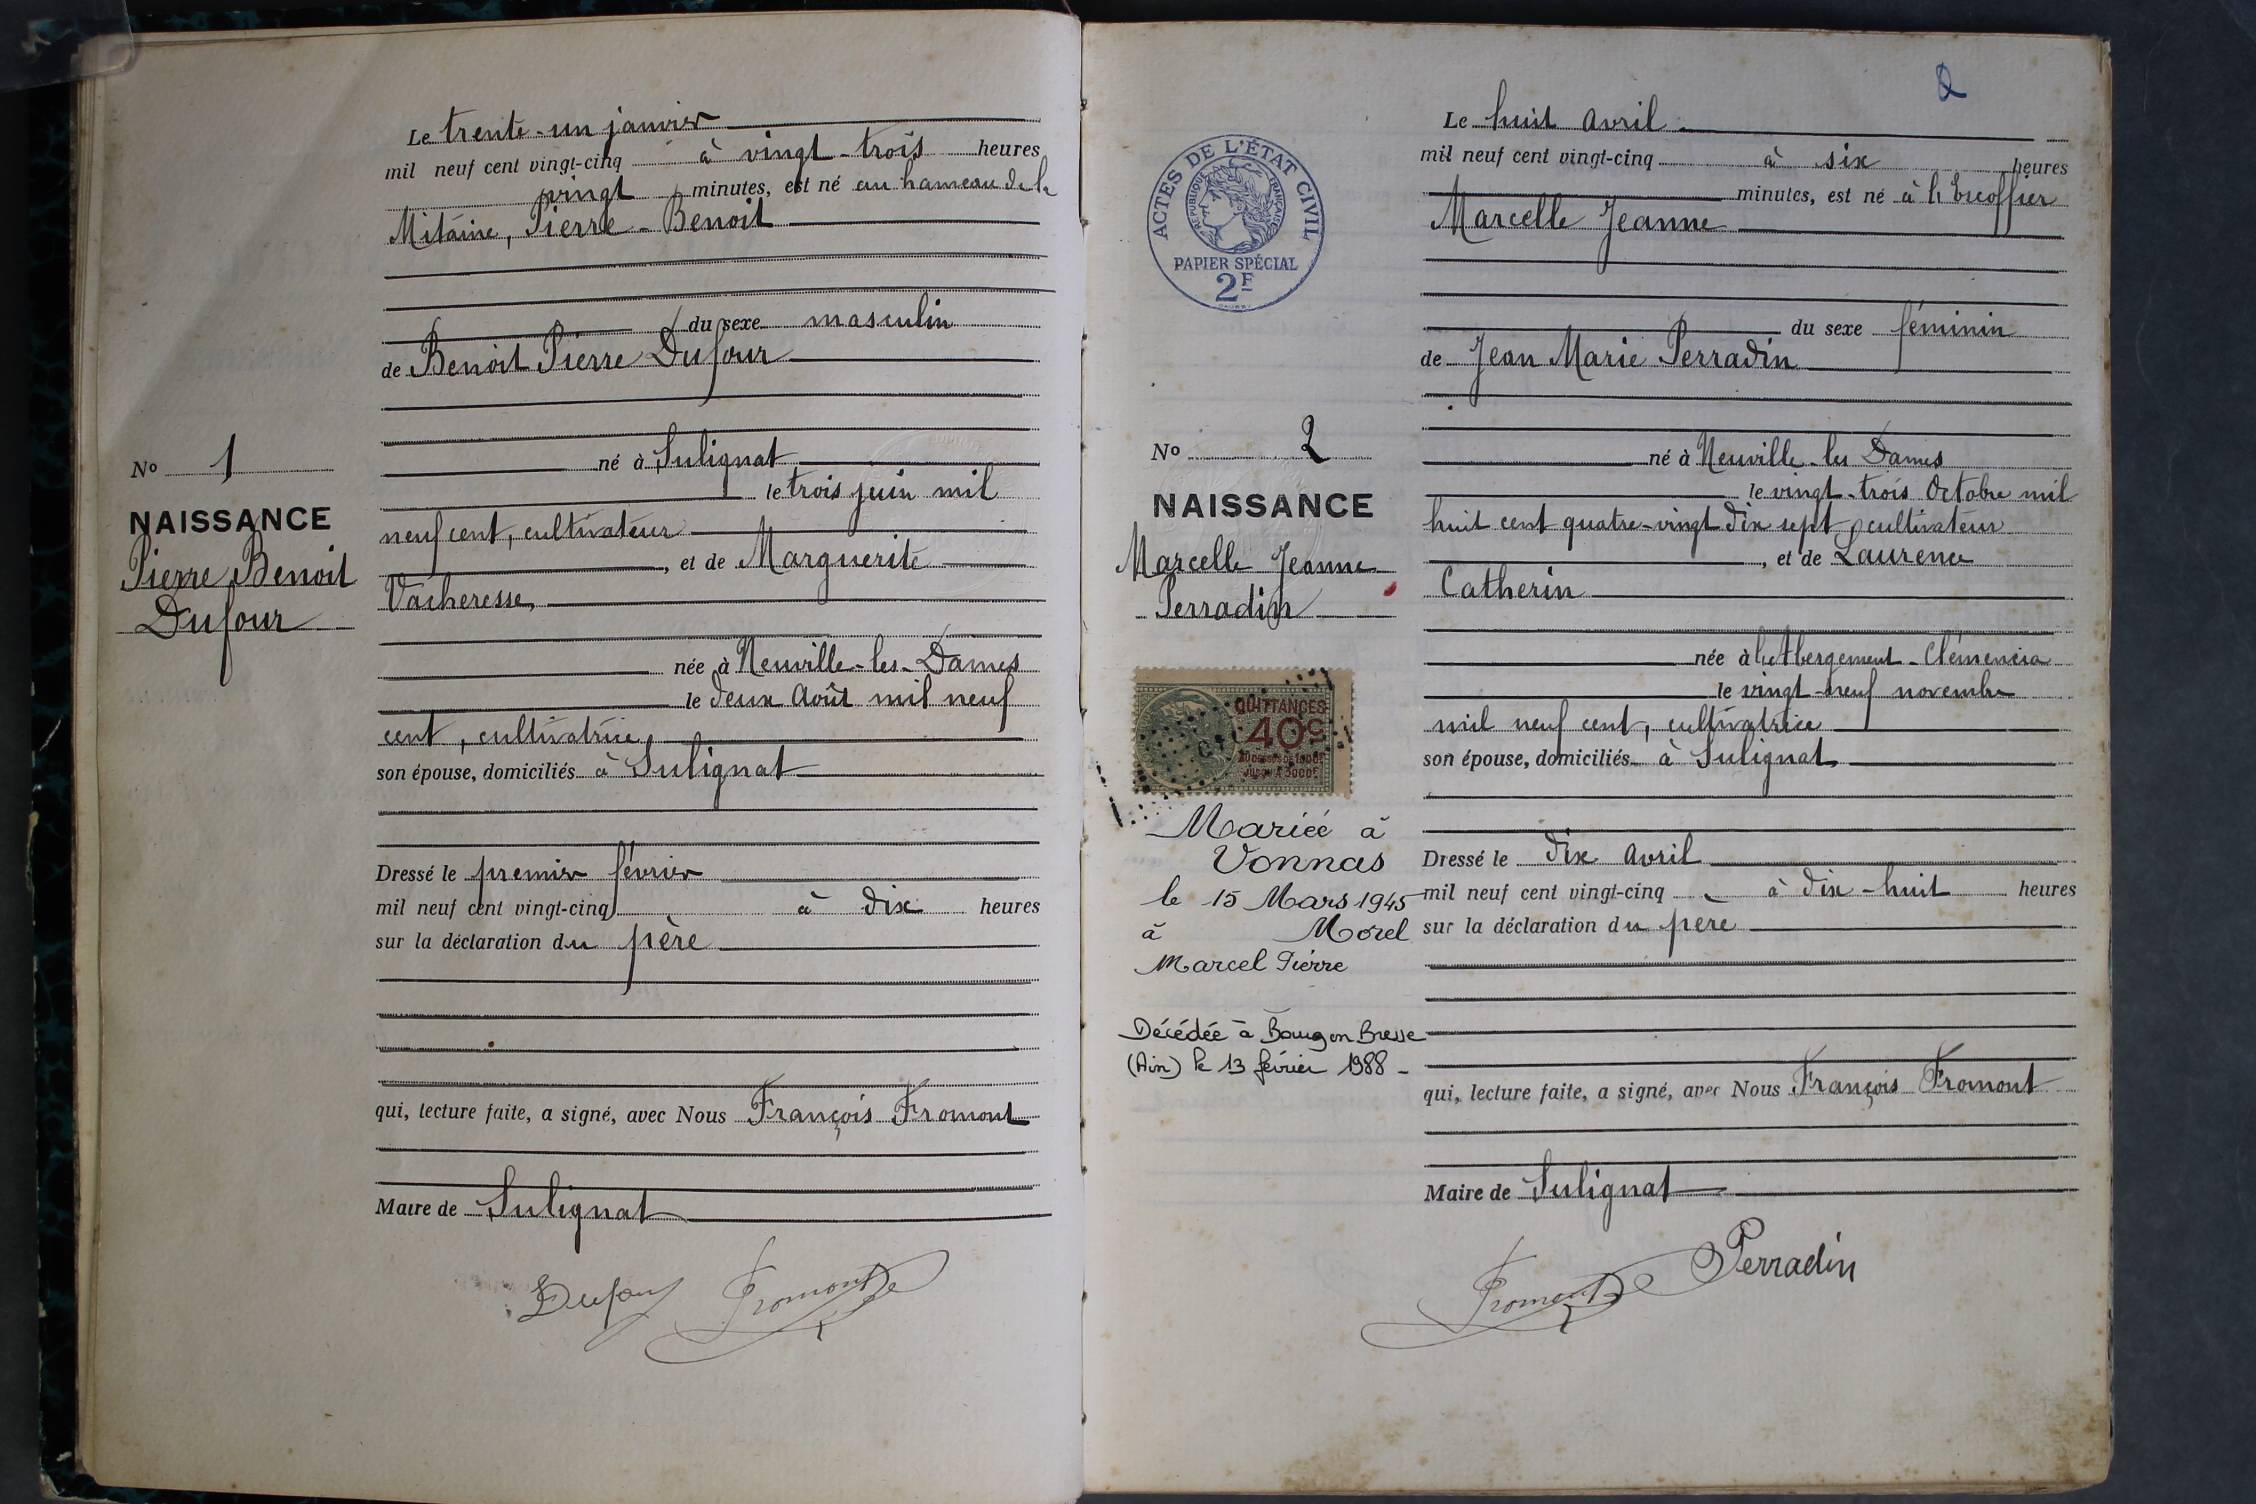 Le trente-un janvier
mil neuf cent vingt-cinq à vingt-trois heures
vingt minutes, est né au hameau de la
Mitaine, Pierre-Benoit
du sexe masculin
de Benoit Pierre Dufour
né à Sulignat
le trois juin mil
neuf cent, cultivateur
, et de Marguerite
Vacheresse,
née à Neuville-les-Dames
le deux Août mil neuf
cent, cultivatrice
son épouse, domiciliés à Sulignat
Dressé le premier février
mil neuf cent vingt-cinq à dix heures
sur la déclaration du père
qui, lecture faite, a signé, avec Nous François Fromont
Maire de Sulignat
Dufour Fromont
No 1
NAISSANCE
Pierre Benoit
Dufour
2
ACTES DE L'ÉTAT CIVIL
RÉPUBLIQUE FRANÇAISE
PAPIER SPÉCIAL
2F
No 2
NAISSANCE
Marcelle Jeanne
Perradin
QUITTANCES
40c
Mariée à
Vonnas
le 15 Mars 1945
à Morel
Marcel Pierre
Décédée à Bourg en Bresse
(Ain) le 13 février 1988 -
Le huit avril
mil neuf cent vingt-cinq à six heures
minutes, est né à l'Escoffier
Marcelle Jeanne
du sexe féminin
de Jean Marie Perradin
né à Neuville-les Dames
le vingt-trois Octobre mil
huit cent quatre-vingt dix sept, cultivateur
, et de Laurence
Catherin
née à l'Abergement-Clémencia
le vingt-neuf novembre
mil neuf cent, cultivatrice
son épouse, domiciliés à Sulignat
Dressé le dix avril
mil neuf cent vingt-cinq à dix-huit heures
sur la déclaration du père
qui, lecture faite, a signé, avec Nous François Fromont
Maire de Sulignat
Fromont Perradin